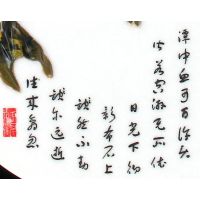 潭中鱼可百许头
皆若空游无所依
日光下彻
影布石上
然不动
尔远逝
往来翕忽